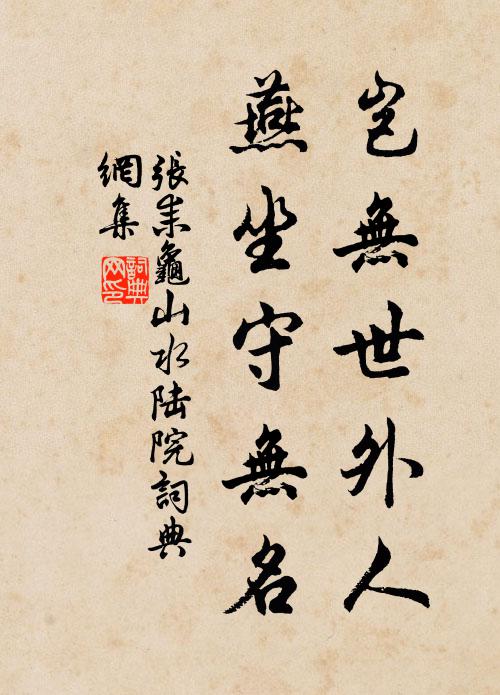 岂無世外人
燕坐守無名
張耒龜山水陆院詞典
網集
詞典
网印